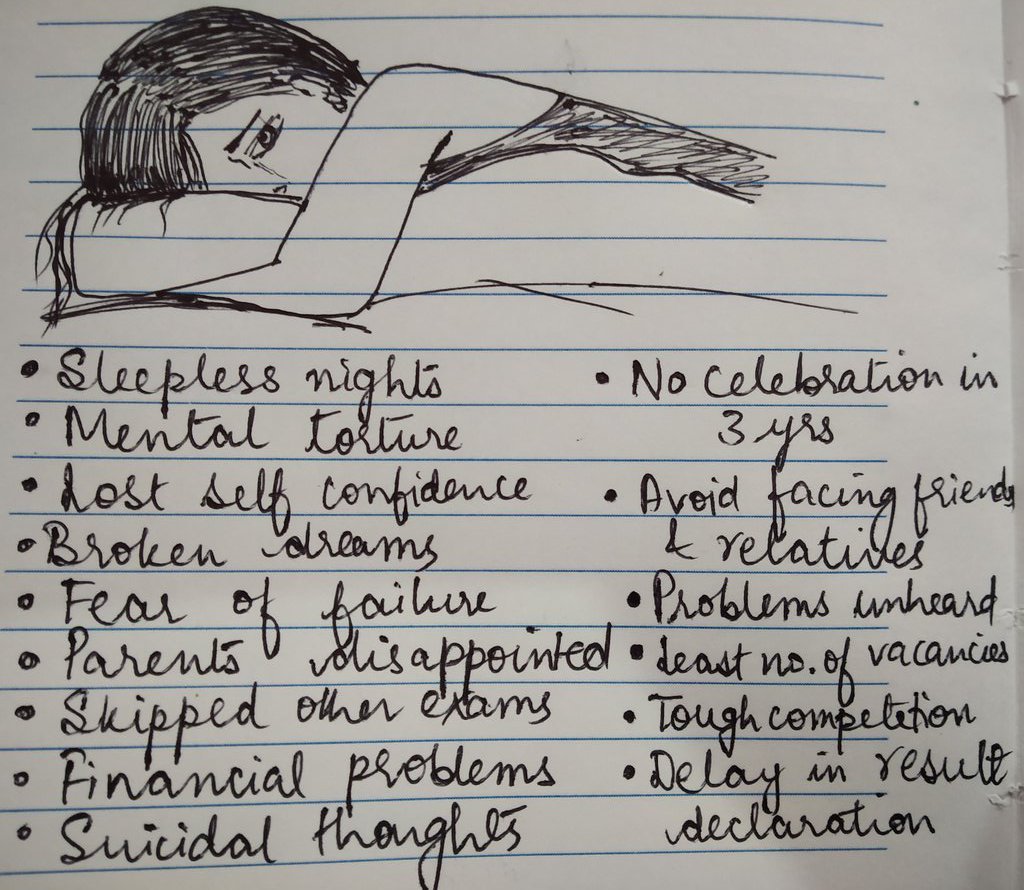 • Sleepless nights
• Mental torture
• Lost self confidence
• Broken dreams
• Fear of failure
• Parents disappointed
• Skipped other exams
• Financial problems
• Suicidal thoughts
• No celebration in
3 yrs
• Avoid facing friends
& relatives
• Problems unheard
• Least no. of vacancies
• Tough competetion
• Delay in result
declaration